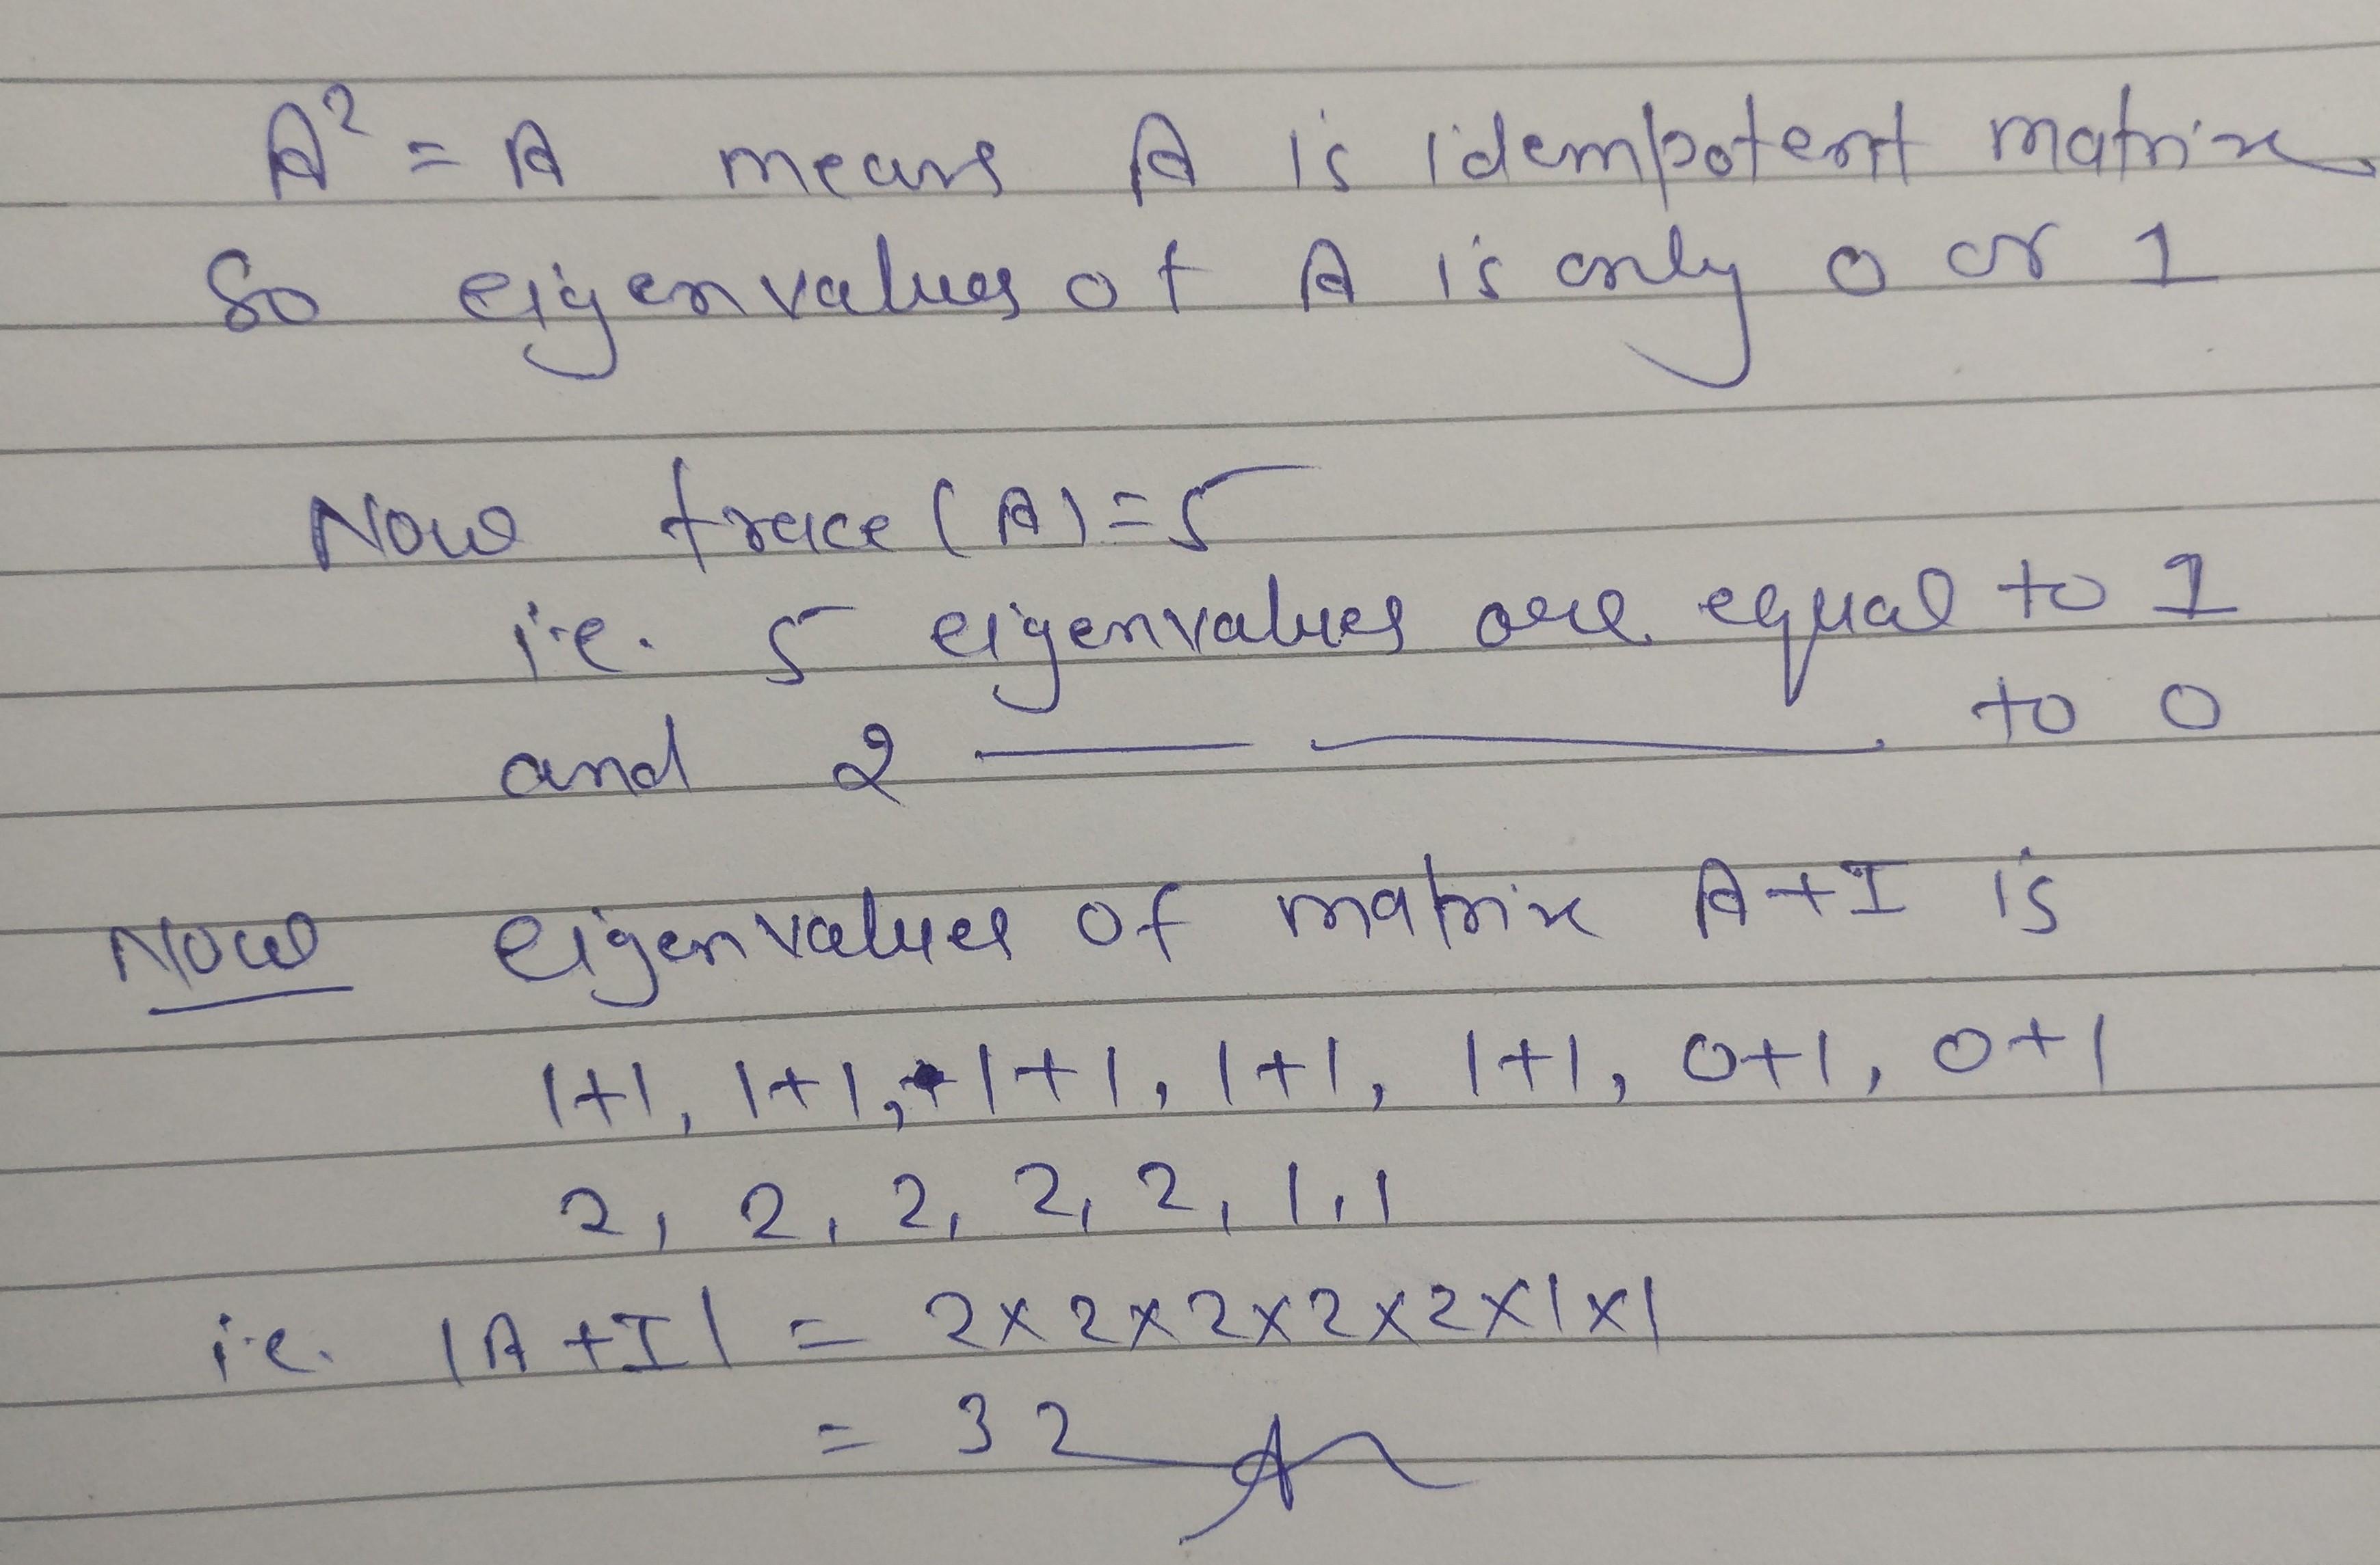 A² = A means A is idempotent matrix.
So eigenvalues of A is only 0 or 1
Now trace (A) = 5
i.e. 5 eigenvalues are equal to 1
and 2 —— —— to 0
Now eigenvalues of matrix A+I is
1+1, 1+1, 1+1, 1+1, 1+1, 0+1, 0+1
2, 2, 2, 2, 2, 1, 1
i.e. |A+I| = 2×2×2×2×2×1×1
= 32